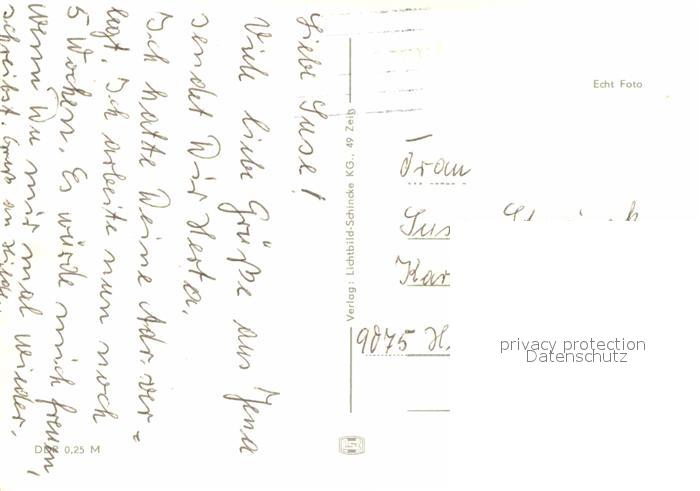 Liebe Suse!
Viele liebe Grüße aus Jena
sendet Dir Herta.
Ich hatte Deine Adr. ver-
legt. Ich arbeite nun noch
5 Wochen. Es würde mich freuen,
wenn Du mir mal wieder
schreibst. Gruß an
Verlag: Lichtbild-Schincke KG., 49 Zeitz
Echt Foto
Frau
Sus
Kar
9075 H.
privacy protection
Datenschutz
DDR 0,25 M